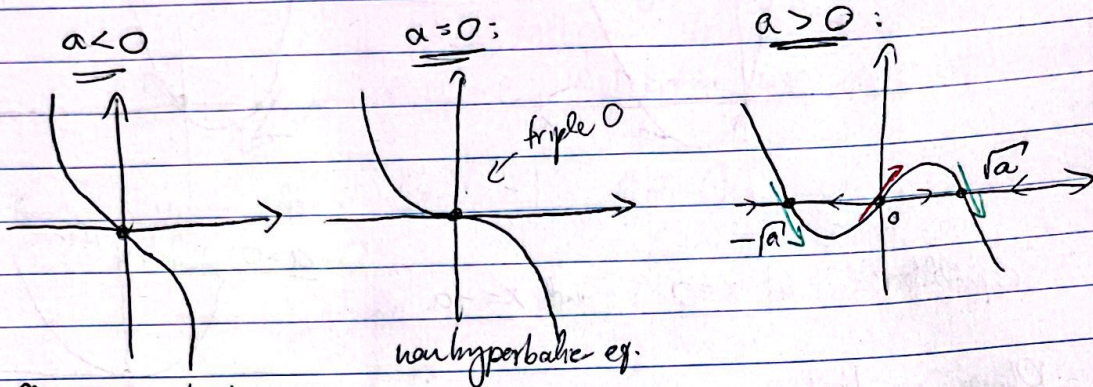 a<0
a=0:
a>0:
triple 0
√a
-√a
0
nonhyperbolic eq.